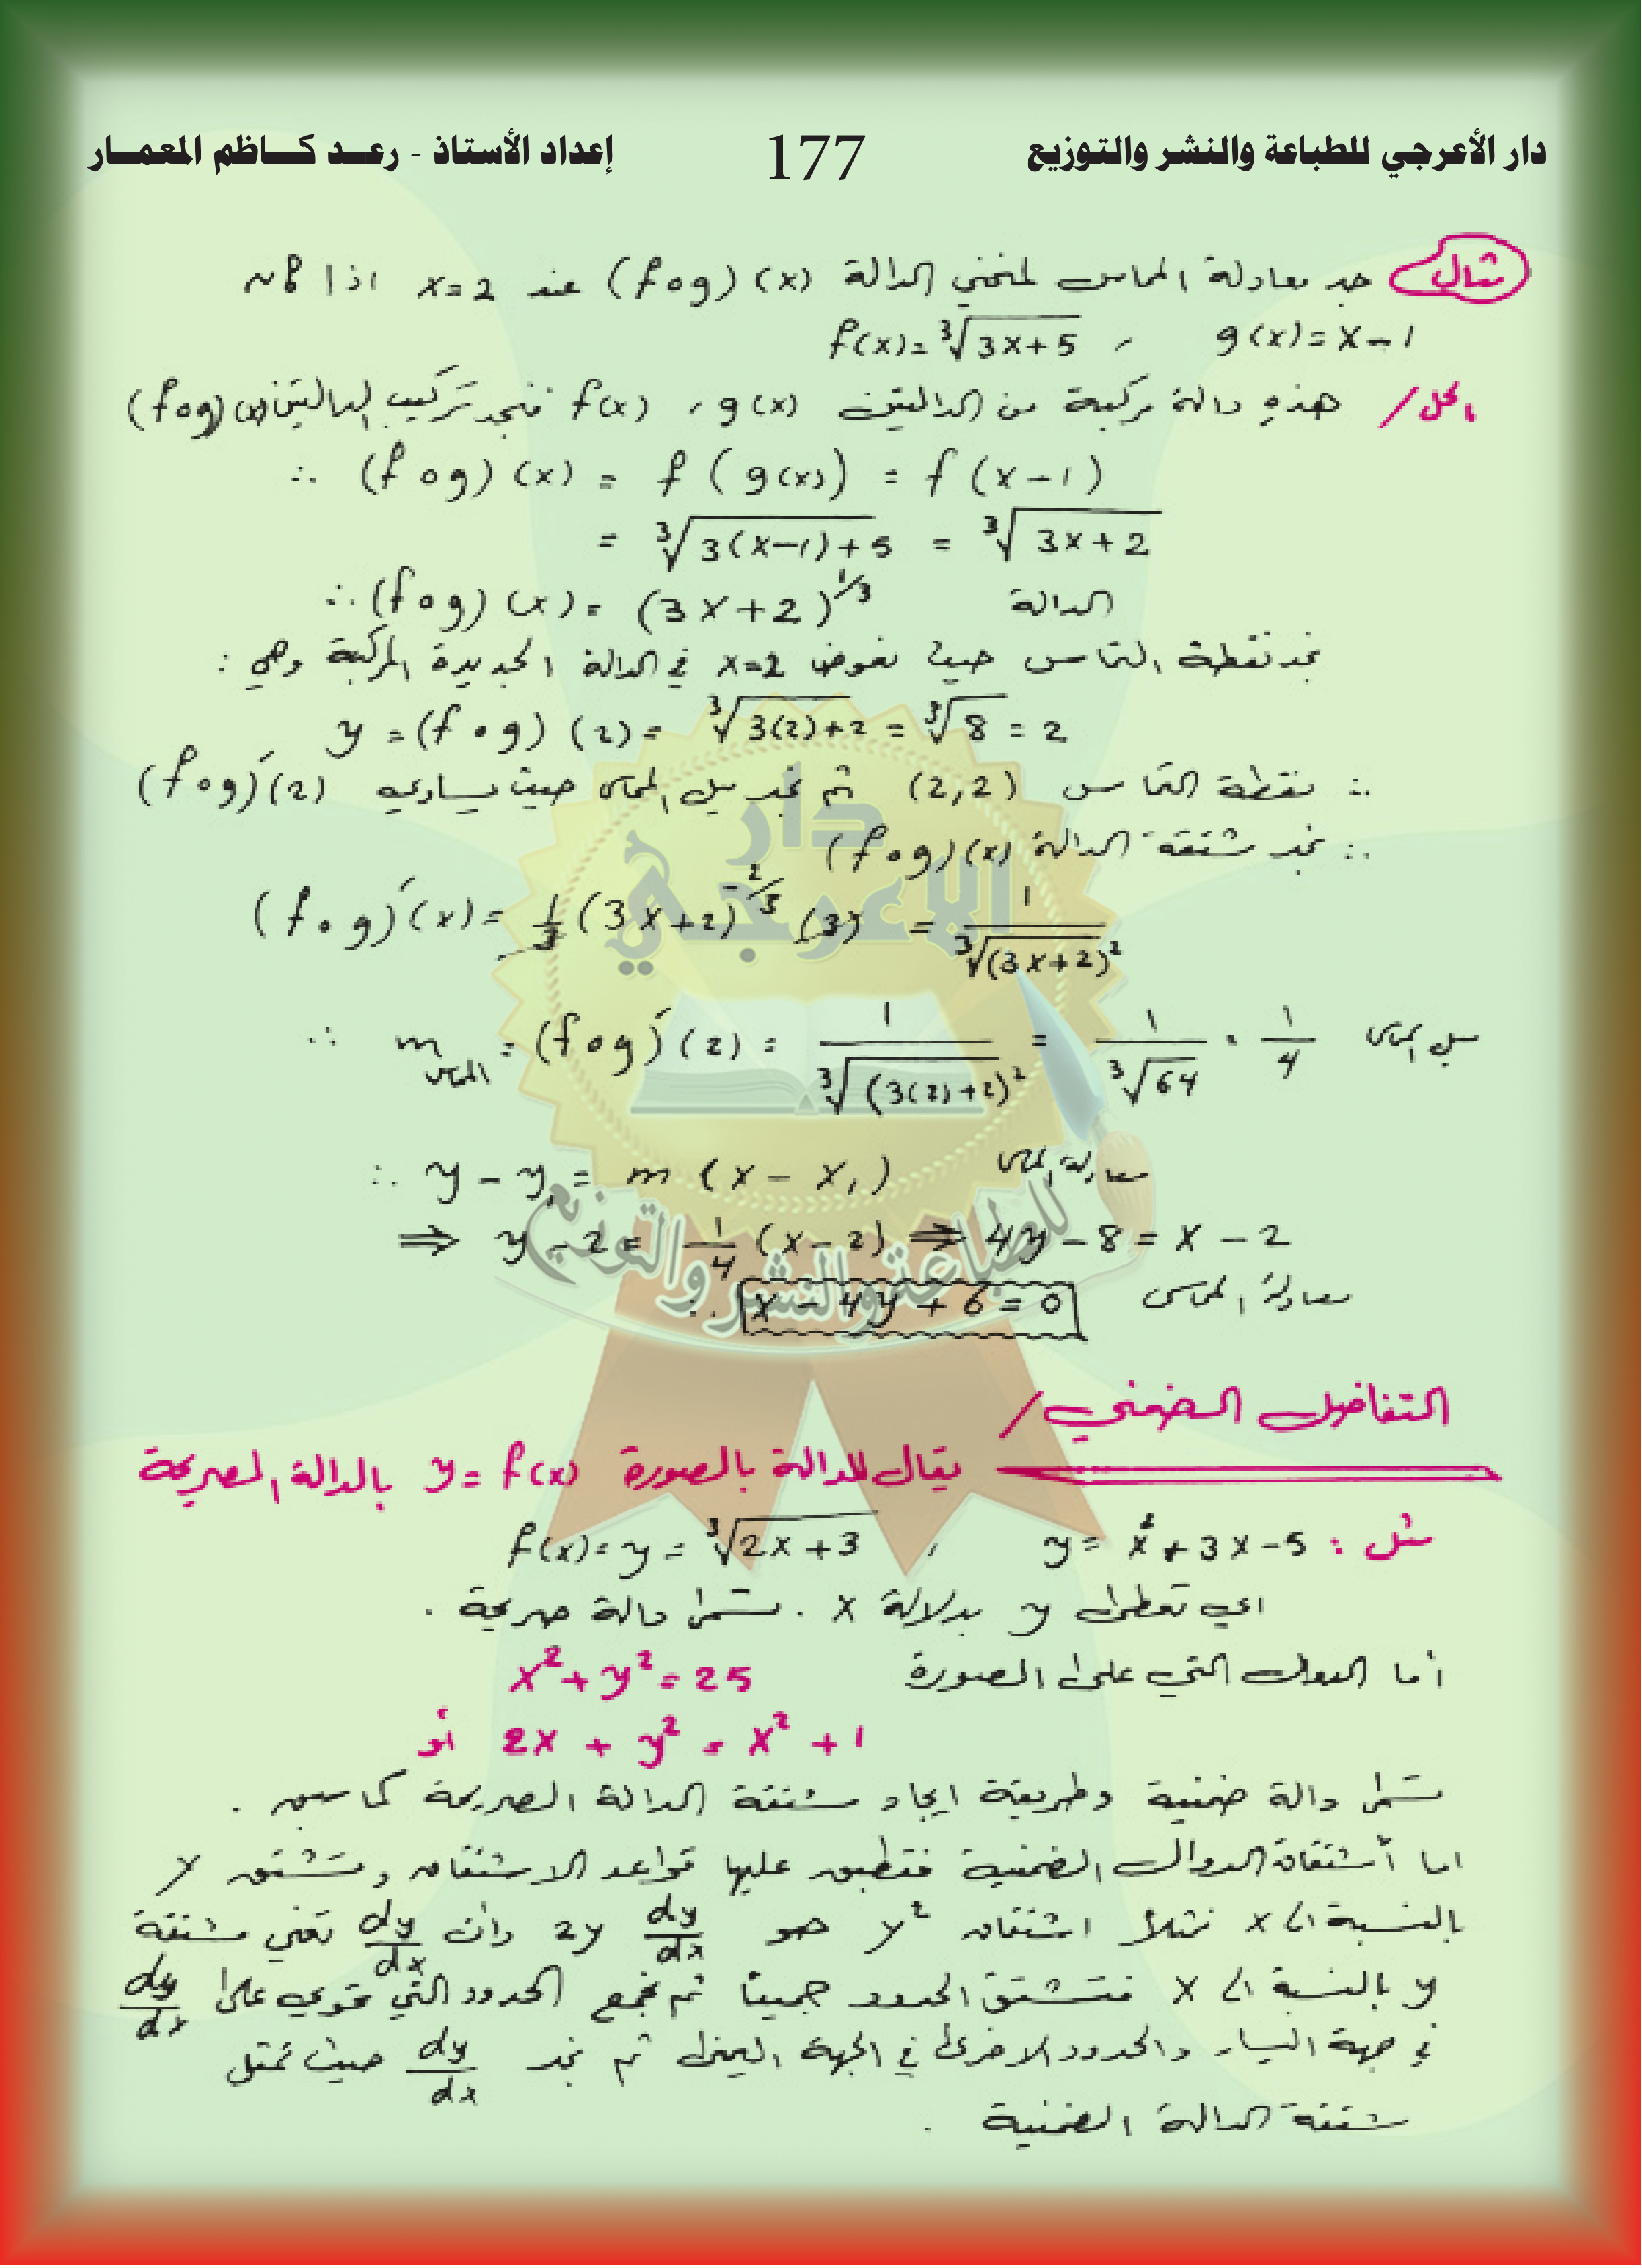 دار الأعرجي للطباعة والنشر والتوزيع 177 إعداد الأستاذ - رعد كاظم المعمار
مثال جد معادلة المماس لمنحني الدالة (fog)(x) عند x=2 اذا كان
f(x)=∛(3x+5) ، g(x)=x-1
الحل/ هذه دالة مركبة من الدالتين g(x) ، f(x) فنجد تركيب الدالتين (fog)(x)
∴ (fog)(x) = f(g(x)) = f(x-1)
= ∛(3(x-1)+5) = ∛(3x+2)
∴ (fog)(x) = (3x+2)^1/3 الدالة
نجد نقطة التماس حيث نعوض x=2 في الدالة الجديدة المركبة وهي :
y = (fog)(2) = ∛(3(2)+2) = ∛8 = 2
∴ نقطة التماس (2,2) ثم نجد ميل المماس حيث يساوي (fog)′(2)
∴ نجد مشتقة الدالة (fog)(x)
(fog)′(x) = 1/3 (3x+2)^-2/3 (3) = 1/∛(3x+2)²
∴ m المماس = (fog)′(2) = 1/∛(3(2)+2)² = 1/∛64 = 1/4 ميل المماس
∴ y - y₁ = m(x - x₁) معادلة المماس
⇒ y - 2 = 1/4 (x-2) ⇒ 4y - 8 = x - 2
∴ x - 4y + 6 = 0 معادلة المماس
التفاضل الضمني/
يقال للدالة بالصورة y = f(x) بالدالة الصريحة
مثل : y = x²+3x-5 ، f(x)=y=∛(2x+3)
اي تعطى y بدلالة x . تسمى دالة صريحة .
أما الدوال التي على الصورة x²+y²=25
أو 2x + y² = x² + 1
تسمى دالة ضمنية وطريقة ايجاد مشتقة الدالة الصريحة كما سبق .
اما أشتقاق الدوال الضمنية فتطبق عليها قواعد الاشتقاق وتشتق y
بالنسبة الى x فمثلا اشتقاق y² هو 2y dy/dx وان dy/dx تعني مشتقة
y بالنسبة الى x فتشتق الحدود جميعاً ثم نجمع الحدود التي تحوي على dy/dx
في جهة اليسار والحدود الاخرى في الجهة اليمنى ثم نجد dy/dx حيث تمثل
مشتقة الدالة الضمنية .
دار
الاعرجي
للطباعة والنشر والتوزيع